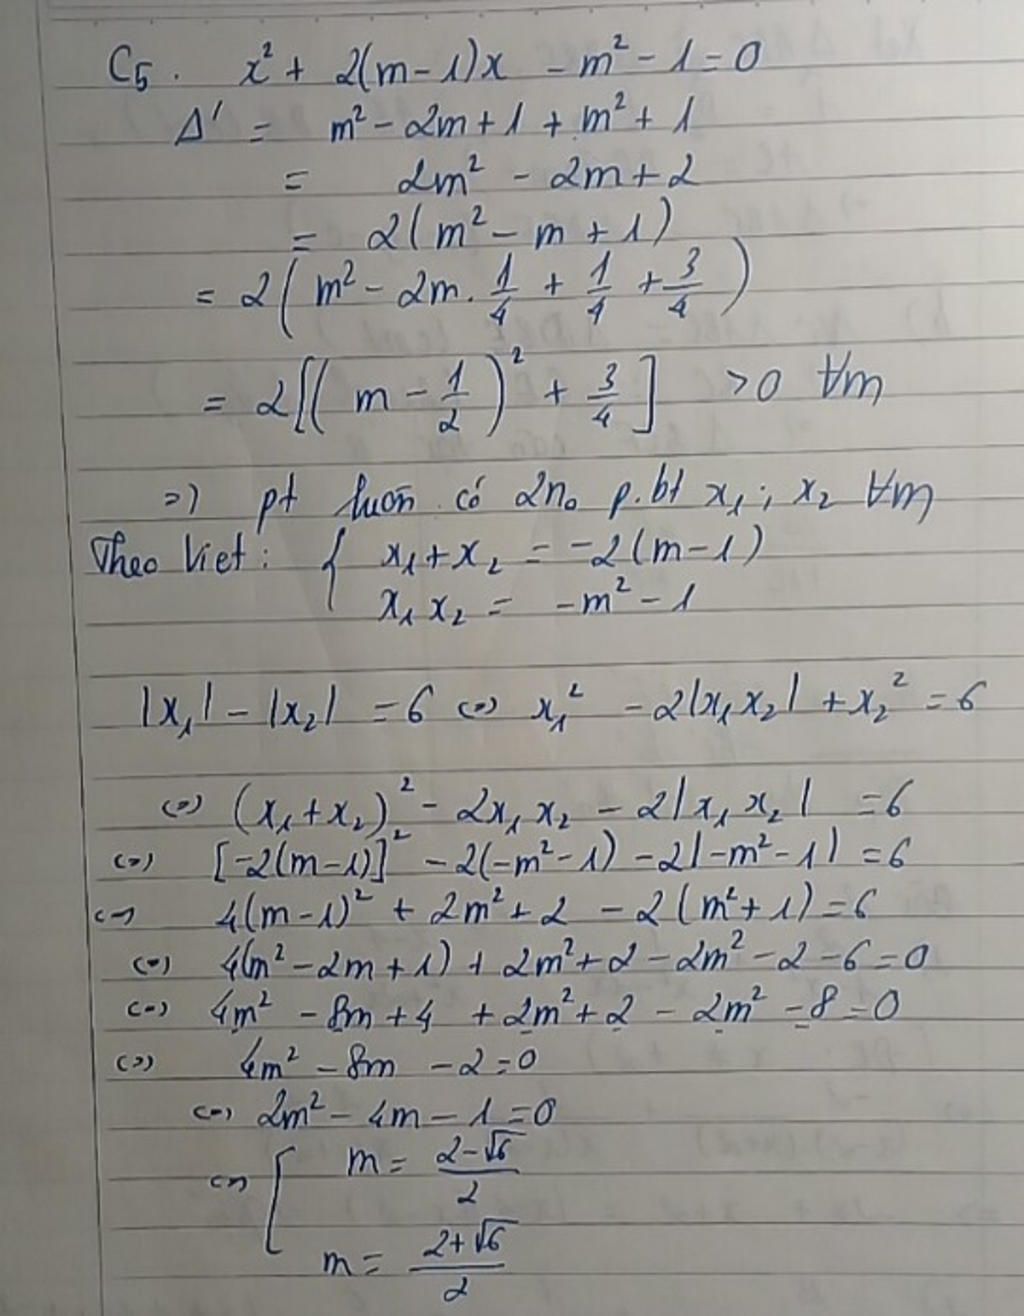 C5. x² + 2(m-1)x - m² - 1 = 0
Δ' = m² - 2m + 1 + m² + 1
= 2m² - 2m + 2
= 2(m² - m + 1)
= 2(m² - 2m. 1/4 + 1/4 + 3/4)
= 2[(m - 1/2)² + 3/4] >0 ∀m
=> pt luôn có 2n₀ p.bt x₁; x₂ ∀m
Theo Viet: { x₁ + x₂ = -2(m-1)
x₁x₂ = -m² - 1
|x₁| - |x₂| = 6 <=> x₁² - 2|x₁x₂| + x₂² = 6
<=> (x₁+x₂)² - 2x₁x₂ - 2|x₁x₂| = 6
<=> [-2(m-1)]² - 2(-m²-1) - 2|-m²-1| = 6
<=> 4(m-1)² + 2m² + 2 - 2(m²+1) = 6
<=> 4(m² - 2m + 1) + 2m² + 2 - 2m² - 2 - 6 = 0
<=> 4m² - 8m + 4 + 2m² + 2 - 2m² - 8 = 0
<=> 4m² - 8m - 2 = 0
<=> 2m² - 4m - 1 = 0
<=> [ m = (2-√6)/2
m = (2+√6)/2